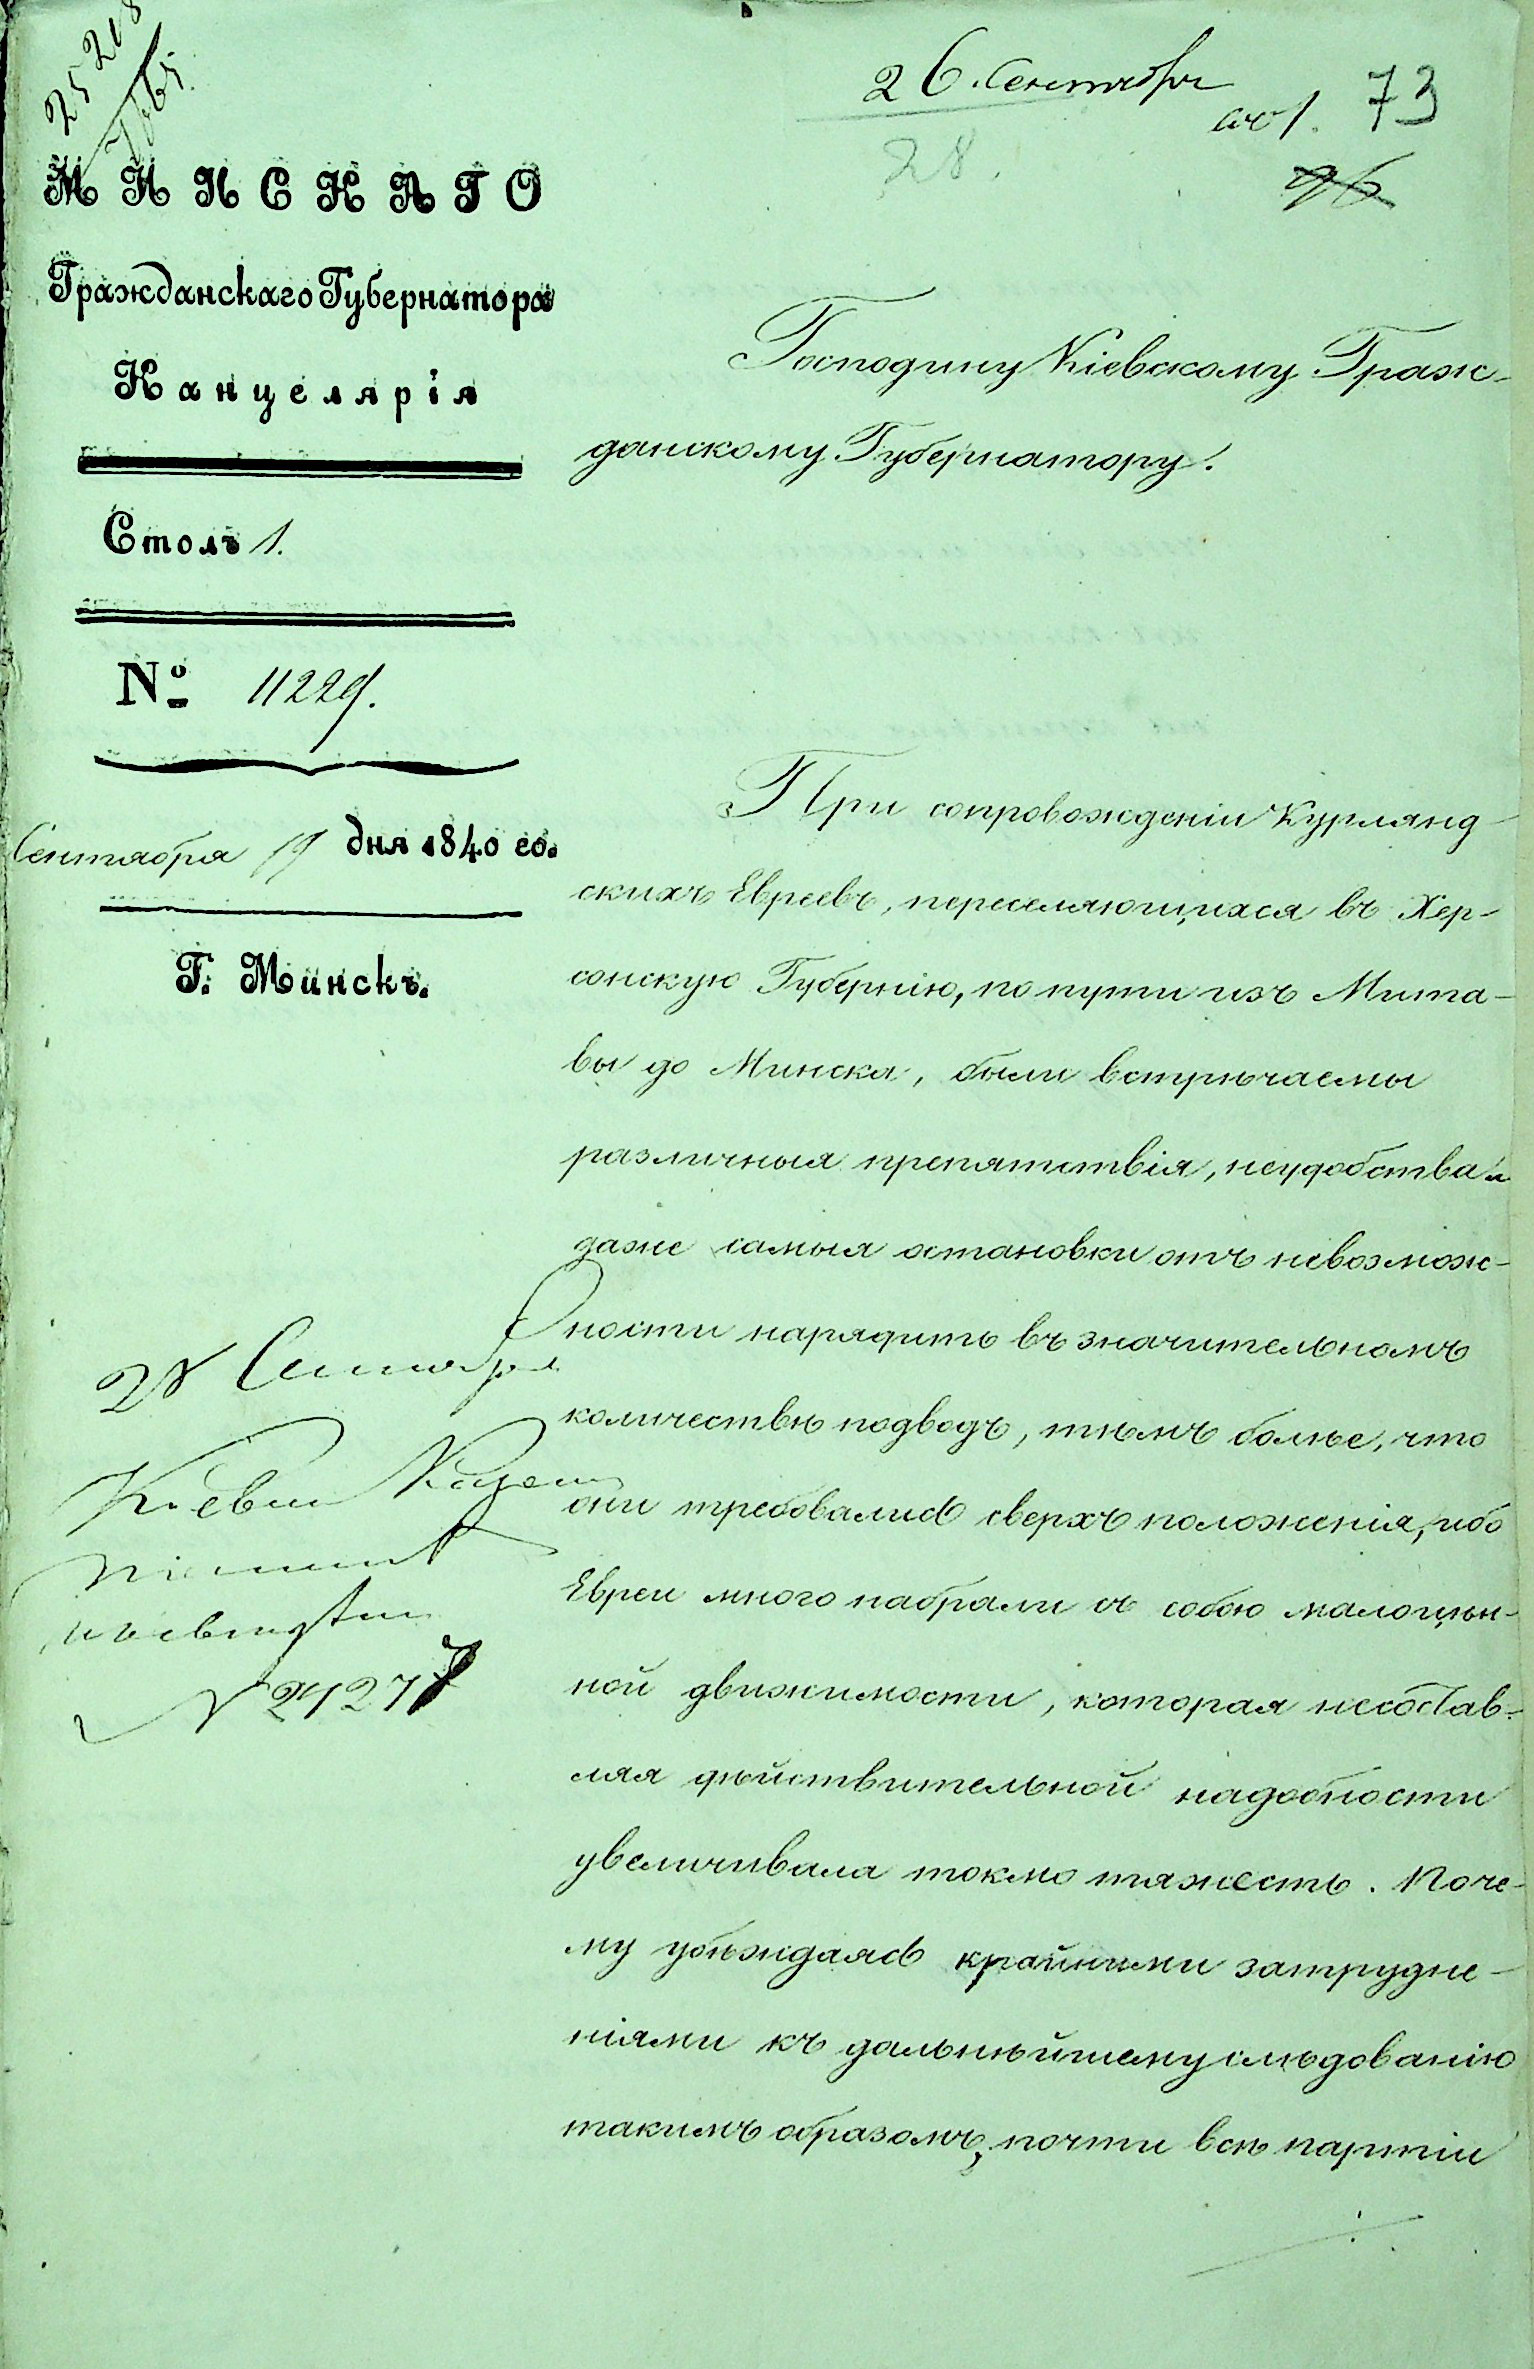 25218
26. Сентября
73
28.
96
МИНСКАГО
Гражданскаго Губернатора
Канцелярія
Столъ 1.
№ 11229.
Сентября 19 дня 1840 го.
Г. Минскъ.
Господину Кіевскому Граж-
данскому Губернатору.
При сопровожденіи Курлянд-
скихъ Евреевъ, переселяющихся въ Хер-
сонскую Губернію, по пути изъ Мита-
вы до Минска, были встрѣчаемы
различныя препятствія, неудобства и
даже самыя остановки отъ невозмож-
ности нарядить въ значительномъ
количествѣ подводъ, тѣмъ болѣе, что
они требовались сверхъ положенія, ибо
Евреи много набрали съ собою малоцѣн-
ной движимости, которая несостав-
ляя дѣйствительной надобности
увеличивала токмо тяжесть. Поче-
му убѣждаясь крайними затрудне-
ніями къ дальнѣйшему слѣдованію
такимъ образомъ, почти всѣ партіи
28 Сентября
№ 24277